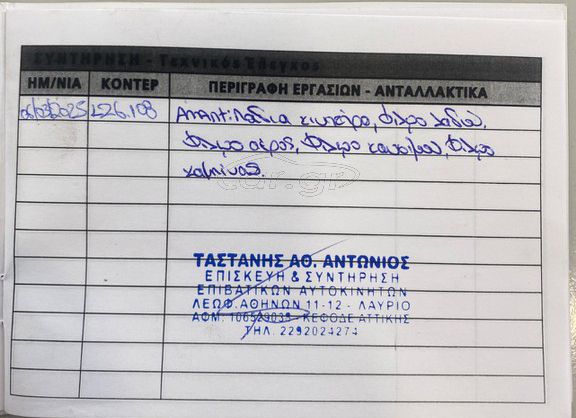 ΣΥΝΤΗΡΗΣΗ - Τεχνικός Έλεγχος
ΗΜ/ΝΙΑ ΚΟΝΤΕΡ ΠΕΡΙΓΡΑΦΗ ΕΡΓΑΣΙΩΝ - ΑΝΤΑΛΛΑΚΤΙΚΑ
226.108 λαδια κινητήρα, φιλτρο λαδιού,
φιλτρο αερος, φιλτρο καυσιμου, φιλτρο
καμπινας.
car.gr
ΤΑΣΤΑΝΗΣ ΑΘ. ΑΝΤΩΝΙΟΣ
ΕΠΙΣΚΕΥΗ & ΣΥΝΤΗΡΗΣΗ
ΕΠΙΒΑΤΙΚΩΝ ΑΥΤΟΚΙΝΗΤΩΝ
ΛΕΩΦ. ΑΘΗΝΩΝ 11-12 - ΛΑΥΡΙΟ
ΑΦΜ: 106529039 - ΚΕΦΟΔΕ ΑΤΤΙΚΗΣ
ΤΗΛ. 2292024274